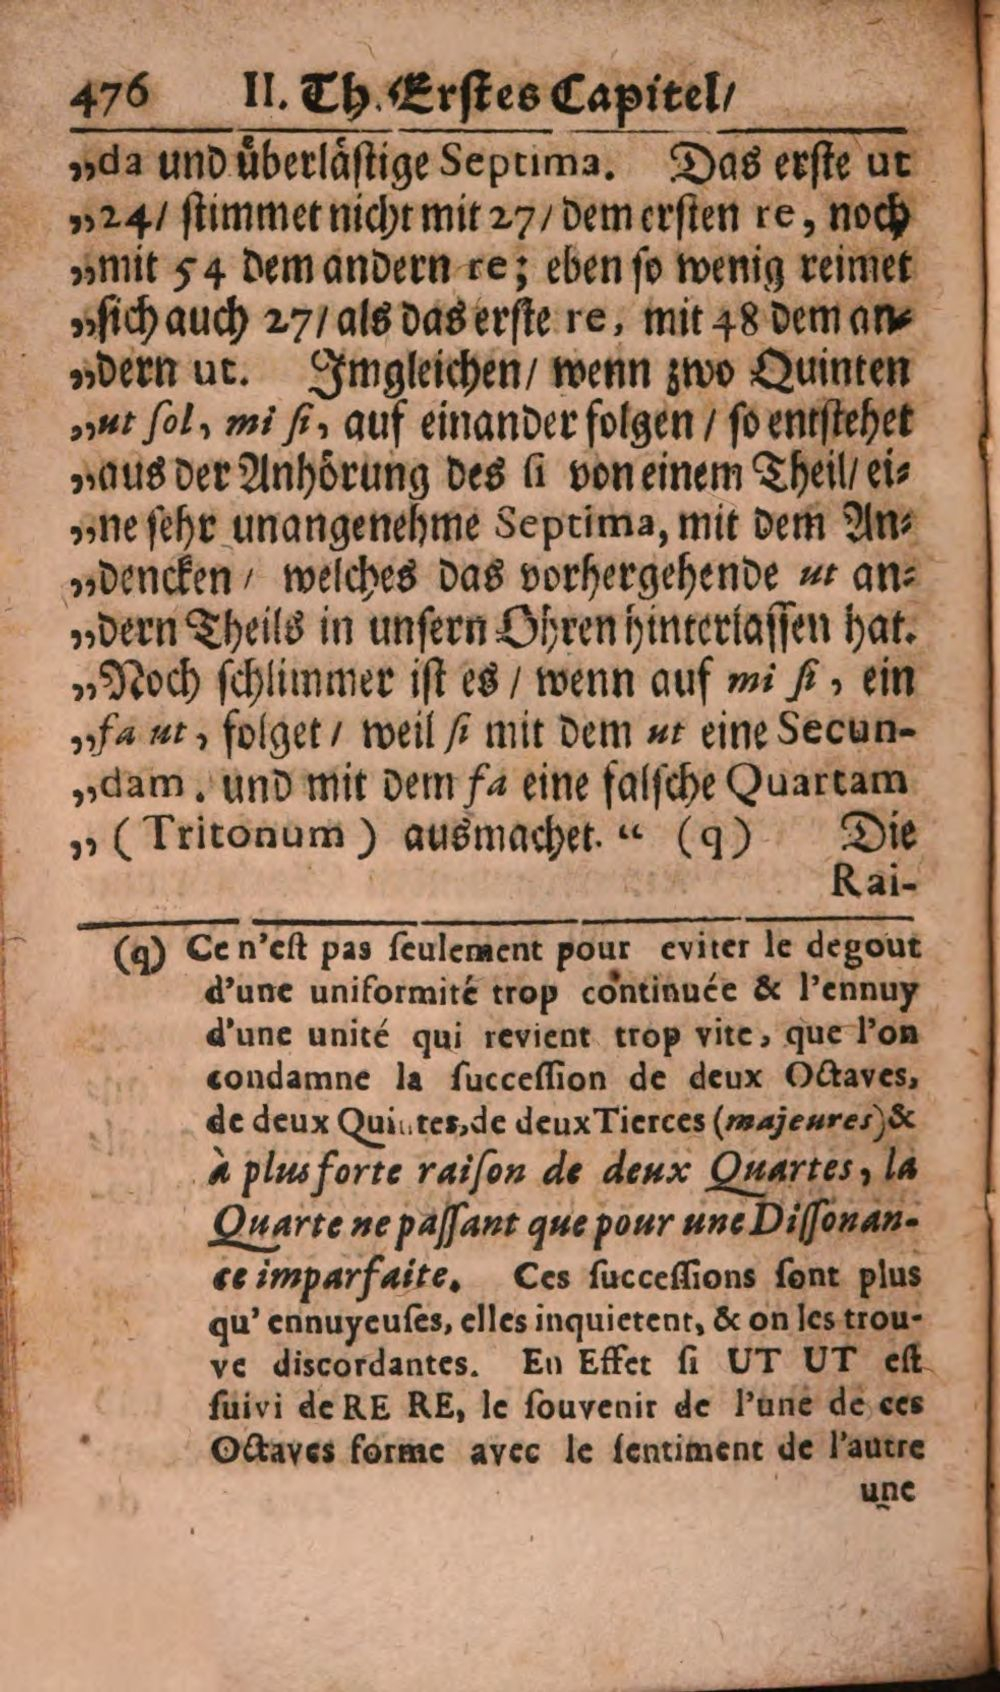 476 II. Th. Erstes Capitel/
„da und uͤberlaͤstige Septima. Das erste ut
„24/ stimmet nicht mit 27/ dem ersten re, noch
„mit 54 dem andern re; eben so wenig reimet
„sich auch 27/ als das erste re, mit 48 dem an-
„dern ut. Imgleichen/ wenn zwo Quinten
„ut ſol, mi ſi, auf einander folgen / so entstehet
„aus der Anhoͤrung des ſi von einem Theil/ ei-
„ne sehr unangenehme Septima, mit dem An-
„dencken / welches das vorhergehende ut an-
„dern Theils in unsern Ohren hinterlassen hat.
„Noch schlimmer ist es / wenn auf mi ſi, ein
„fa ut, folget / weil ſi mit dem ut eine Secun-
„dam. und mit dem fa eine falsche Quartam
„ (Tritonum) ausmachet. “ (q) Die
Rai-
(q) Ce n'eſt pas ſeulement pour eviter le degout
d'une uniformité trop continuée & l'ennuy
d'une unité qui revient trop vite, que l'on
condamne la ſucceſſion de deux Octaves,
de deux Quintes, de deux Tierces (majeures) &
à plus forte raiſon de deux Quartes, la
Quarte ne paſſant que pour une Diſſonan-
ce imparfaite. Ces ſucceſſions ſont plus
qu' ennuyeuſes, elles inquietent, & on les trou-
ve discordantes. En Effet ſi UT UT eſt
ſuivi de RE RE, le ſouvenir de l'une de ces
Octaves forme avec le ſentiment de l'autre
une